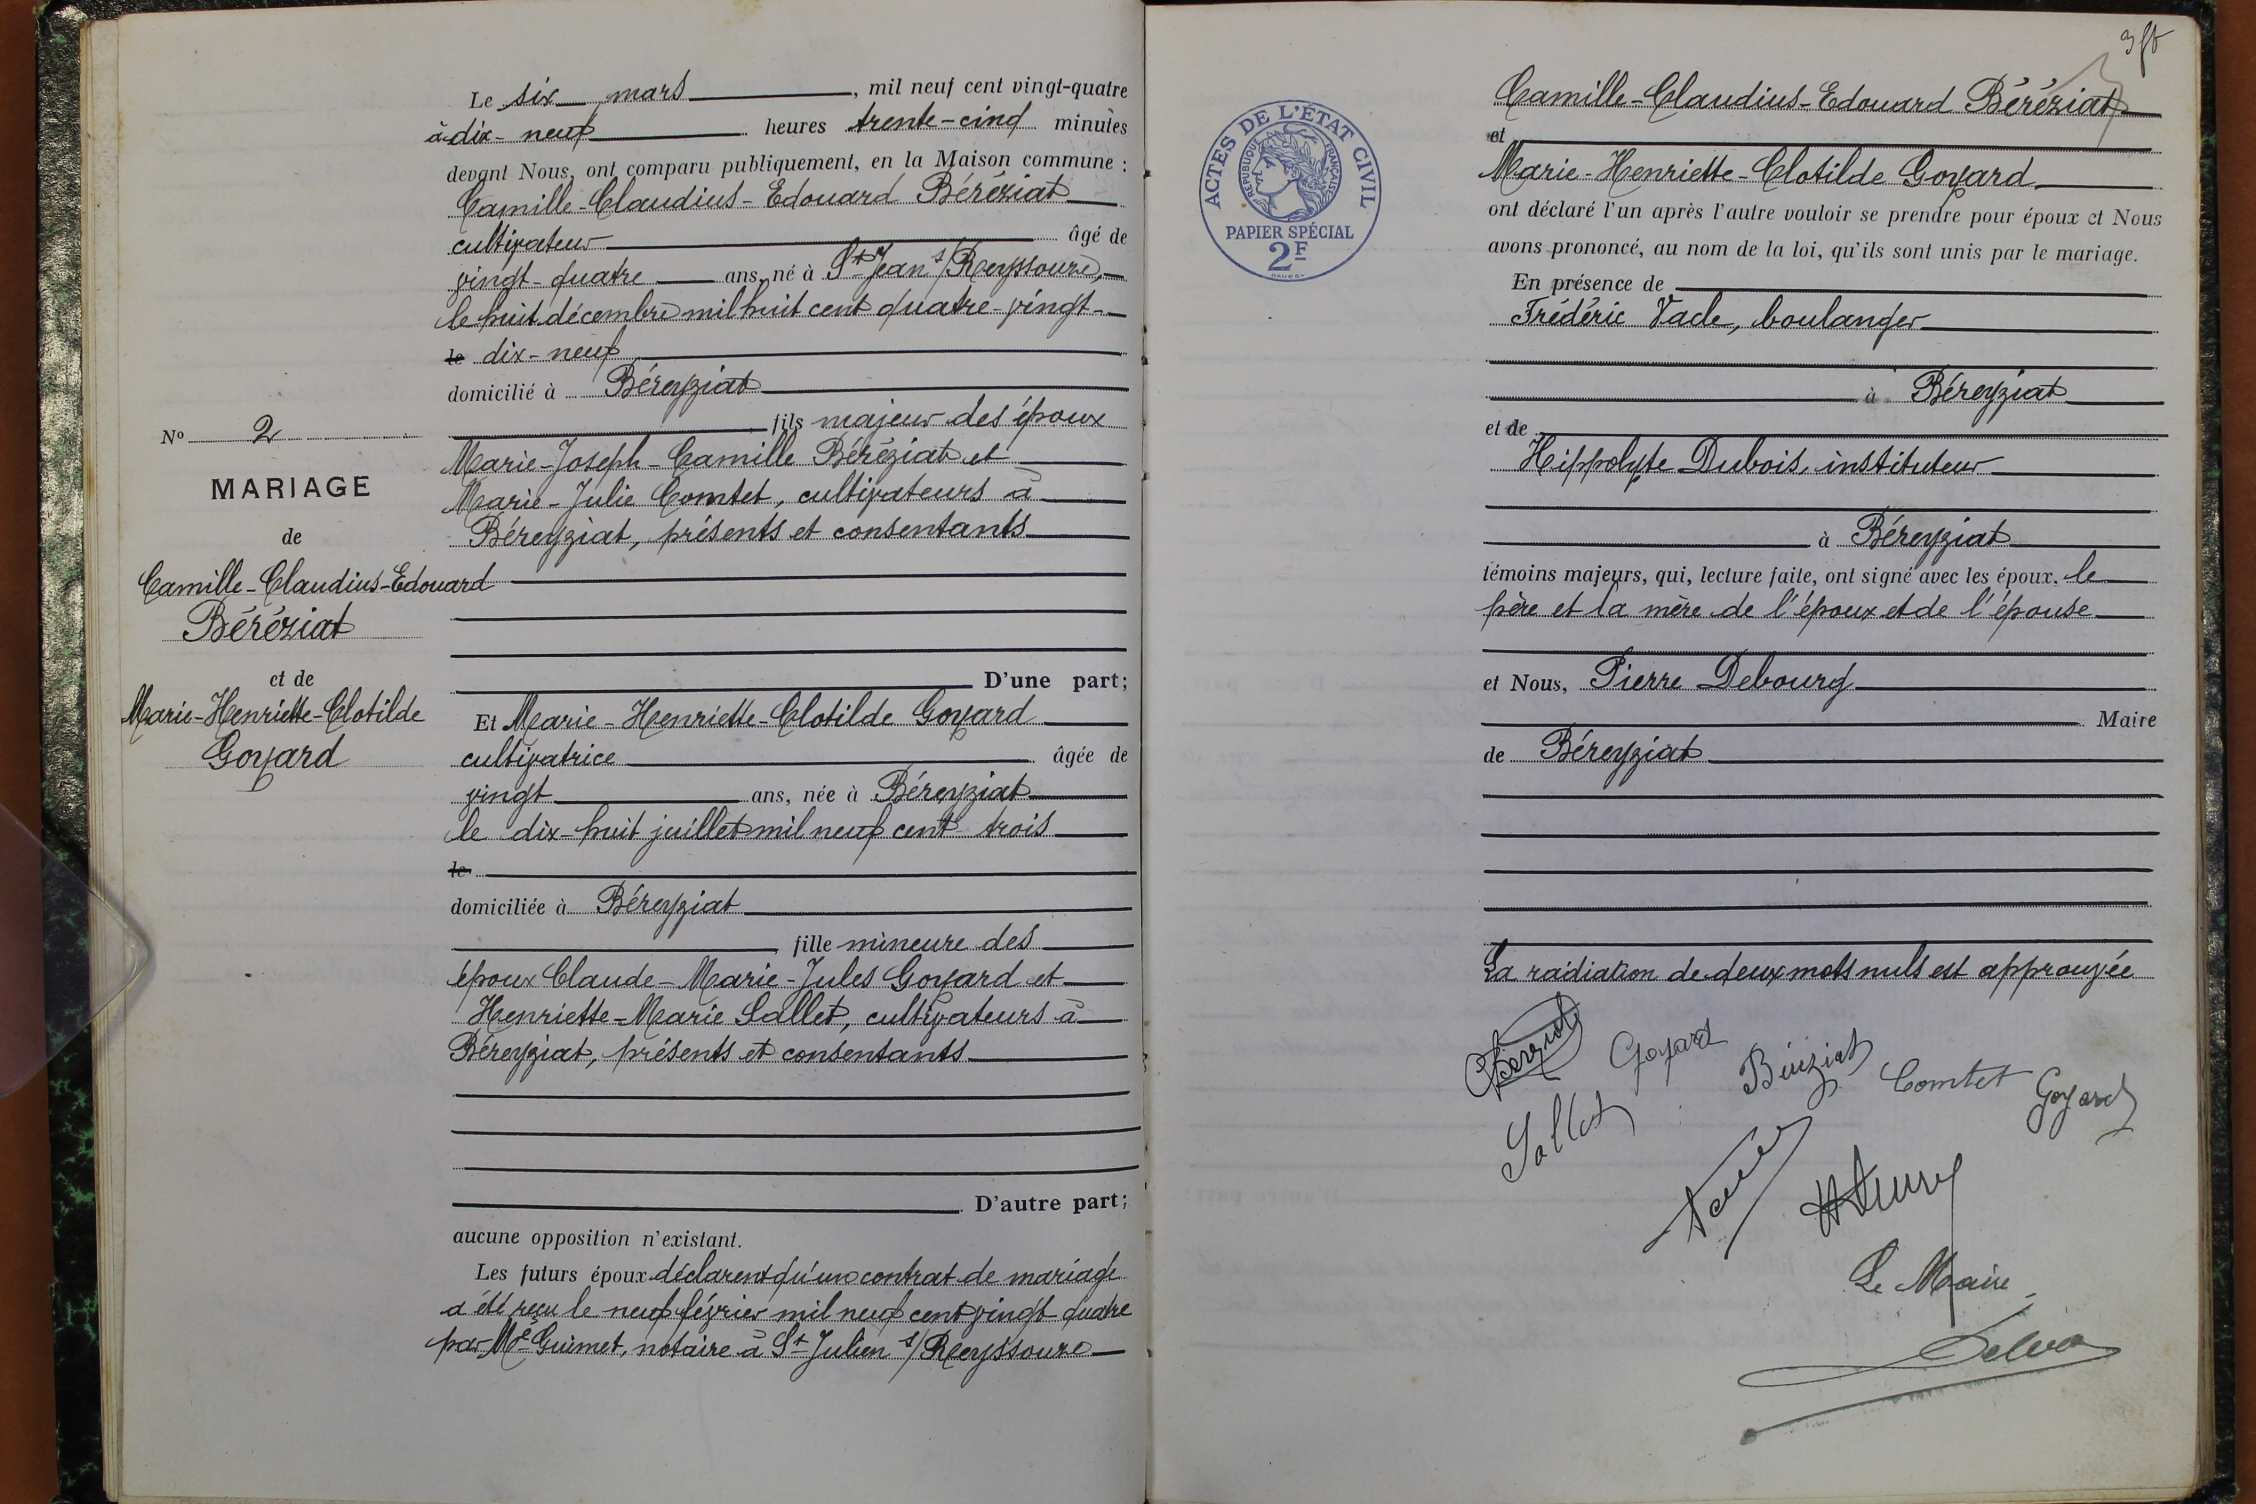 Le six mars, mil neuf cent vingt-quatre
à dix-neuf heures trente-cinq minutes
devant Nous, ont comparu publiquement, en la Maison commune :
Camille-Claudius-Edouard Béréziat
cultivateur âgé de
vingt-quatre ans, né à St Jean s/Reyssouze,
le huit décembre mil huit cent quatre-vingt-
le dix-neuf
domicilié à Béreyziat
fils majeur des époux
Marie-Joseph-Camille Béréziat et
Marie-Julie Comtet, cultivateurs à
Béreyziat, présents et consentants
D'une part;
Et Marie-Henriette-Clotilde Goyard
cultivatrice âgée de
vingt ans, née à Béreyziat
le dix-huit juillet mil neuf cent trois
le
domiciliée à Béreyziat
fille mineure des
époux Claude-Marie-Jules Goyard et
Henriette-Marie Sallet, cultivateurs à
Béreyziat, présents et consentants
D'autre part;
aucune opposition n'existant.
Les futurs époux déclarent qu'un contrat de mariage
a été reçu le neuf février mil neuf cent vingt quatre
par Me Guimet, notaire à St Julien s/Reyssouze
No 2
MARIAGE
de
Camille-Claudius-Edouard
Béréziat
et de
Marie-Henriette-Clotilde
Goyard
ACTES DE L'ÉTAT CIVIL
RÉPUBLIQUE FRANÇAISE
PAPIER SPÉCIAL
2F
Camille-Claudius-Edouard Béréziat
et
Marie-Henriette-Clotilde Goyard
ont déclaré l'un après l'autre vouloir se prendre pour époux et Nous
avons prononcé, au nom de la loi, qu'ils sont unis par le mariage.
En présence de
Frédéric Vacle, boulanger
à Béreyziat
et de
Hippolyte Dubois, instituteur
à Béreyziat
témoins majeurs, qui, lecture faite, ont signé avec les époux, le
père et la mère de l'époux et de l'épouse
et Nous, Pierre Debourg
Maire
de Béreyziat
La radiation de deux mots nuls est approuvée
Goyard Béréziat Comtet Goyard
Sallet
Le Maire